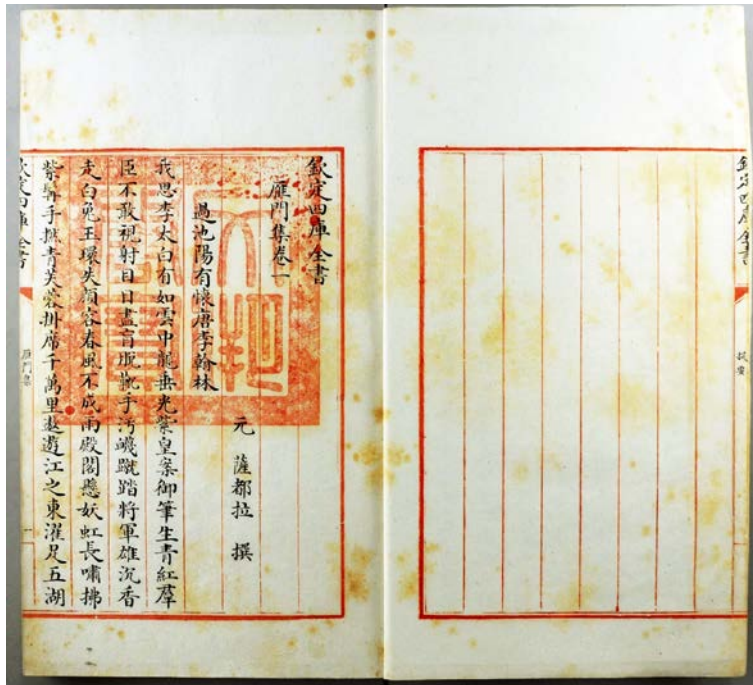 欽定四庫全書
提要
欽定四庫全書
雁門集卷一
元 薩都拉 撰
過池陽有懷唐李翰林
我思李太白有如雲中龍垂光紫皇案御筆生青紅羣
臣不敢視射目目盡盲脫靴手污衊蹴踏將軍雄沉香
走白兔玉環失顔容春風不成雨殿閣懸妖虹長嘯拂
紫髯手撚青芙蓉掛席千萬里遨遊江之東濯足五湖
欽定四庫全書
雁門集
一